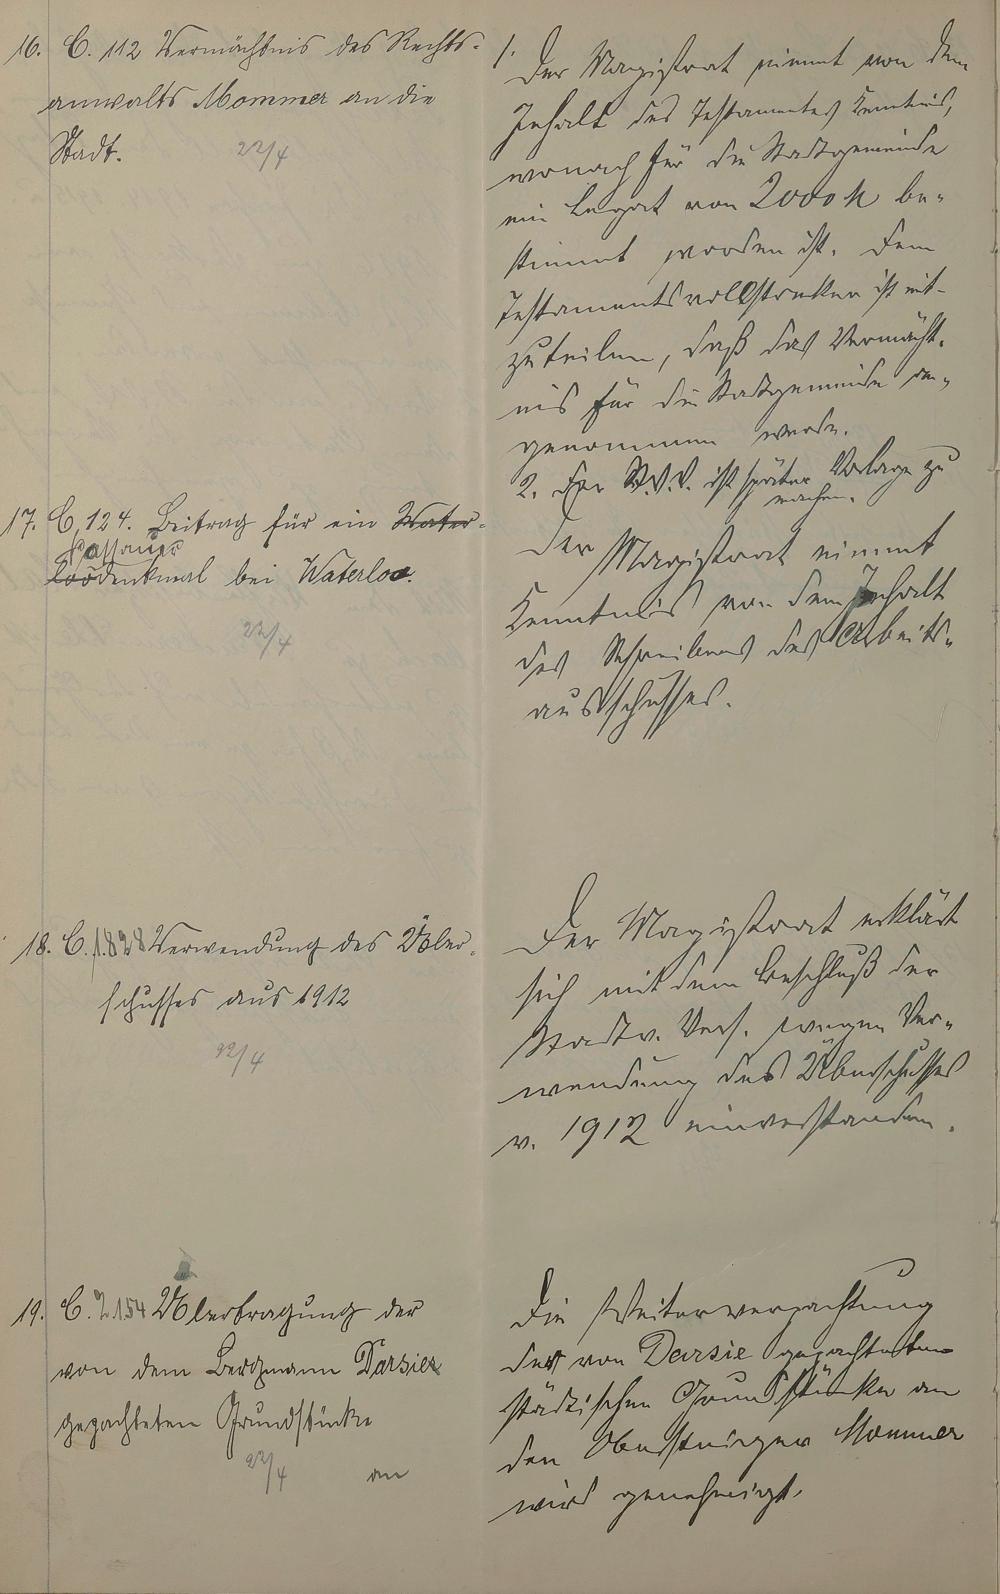 16. C. 112 Vermächtnis des Rechts-
anwalts Mommer an die
Stadt.
22/4
1. Der Magistrat nimmt von dem
Inhalt des Testamentes Kenntnis,
wonach für die Stadtgemeinde
ein Legat von 2000 M be-
stimmt worden ist. Dem
Testamentsvollstrecker ist mit-
zuteilen, daß das Vermächt-
nis für die Stadtgemeinde an-
genommen werde.
2. Der St.V.V. ist später Vorlage zu
machen.
17. C. 124. Beitrag für ein Water-
loodenkmal bei Waterloo.
22/4
Der Magistrat nimmt
Kenntnis von dem Inhalt
des Schreibens des Arbeits-
ausschusses.
18. C. 1828 Verwendung des Über-
schusses aus 1912
22/4
Der Magistrat erklärt
sich mit dem Beschluß der
Stadtv. Vers. wegen Ver-
wendung des Überschusses
v. 1912 einverstanden.
19. C. 2154 Übertragung der
von dem Bergmann Darsie
gepachteten Grundstücke
22/4
an
Die Weiterverpachtung
der von Darsie gepachteten
städtischen Grundstücke an
den Obersteiger Mommer
wird genehmigt.